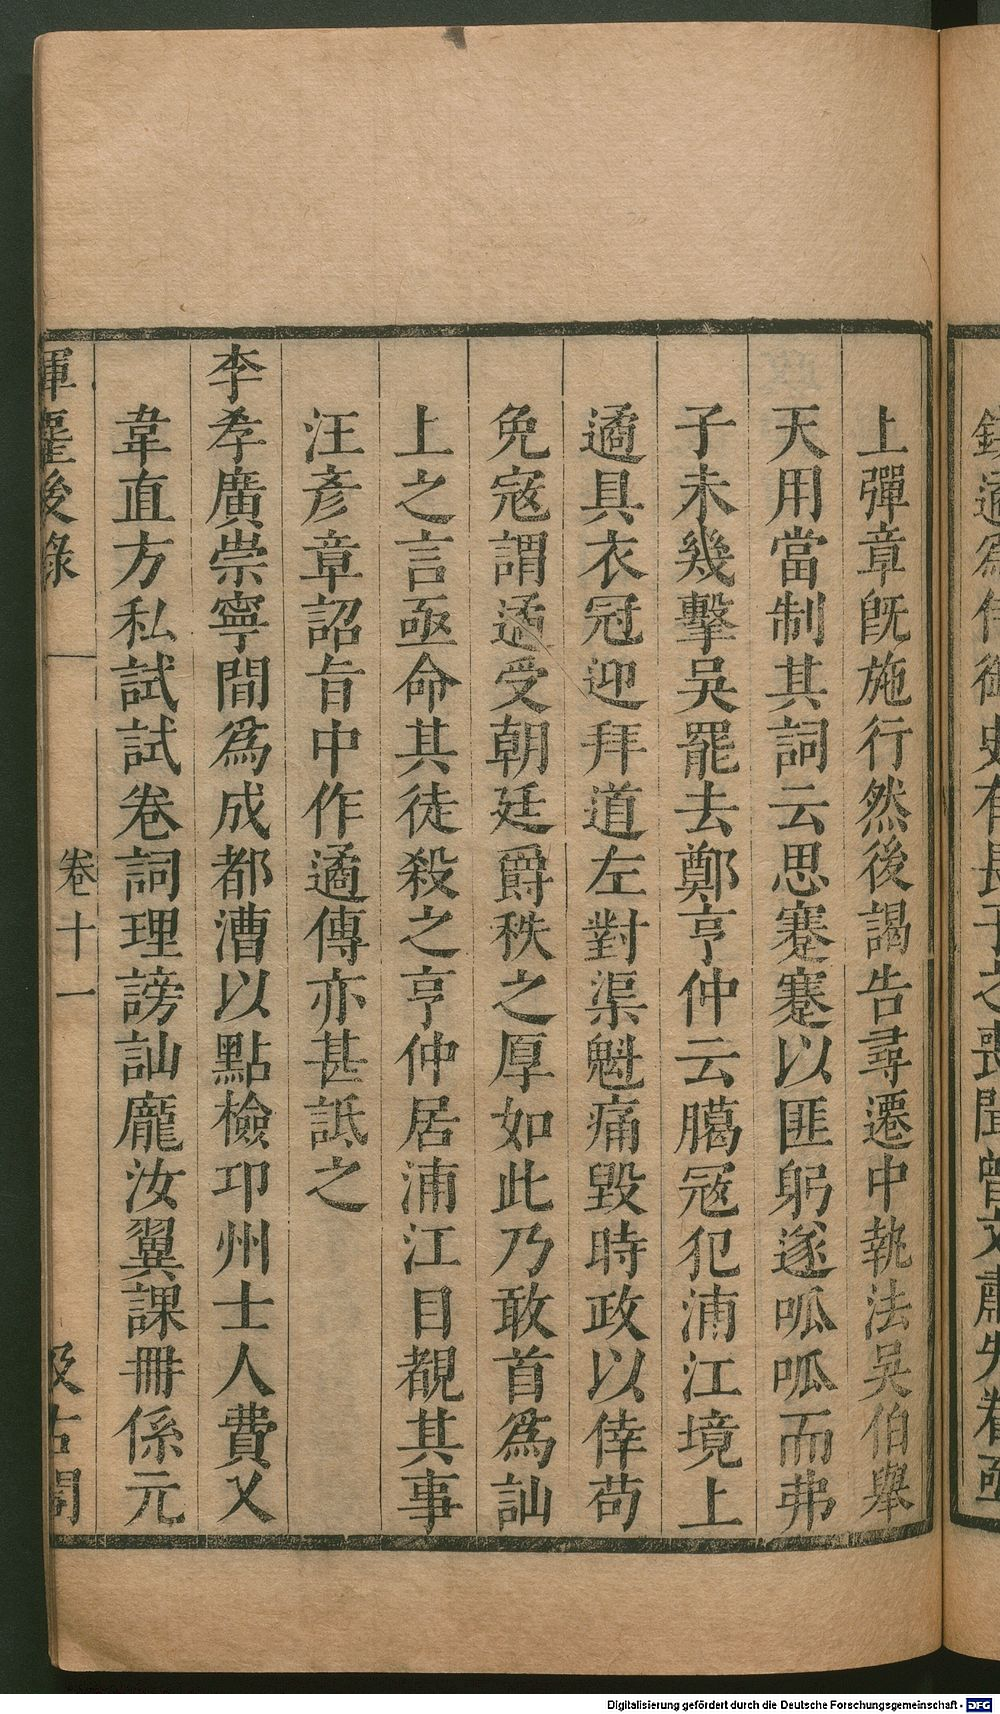 上彈章旣施行然後謁告尋遷中執法吳伯舉
天用當制其詞云思蹇蹇以匪躬遂呱呱而弗
子未幾擊吳罷去鄭亨仲云臈冦犯浦江境上
遹具衣冠迎拜道左對渠魁痛毀時政以倖苟
免冦謂遹受朝廷爵秩之厚如此乃敢首爲訕
上之言亟命其徒殺之亨仲居浦江目覩其事
汪彥章詔旨中作遹傳亦甚詆之
李孝廣崇寧間爲成都漕以點檢卭州士人費乂
韋直方私試試卷詞理謗訕龎汝翼課冊係元
揮麈後錄
卷十一
汲古閣
Digitalisierung gefördert durch die Deutsche Forschungsgemeinschaft - DFG